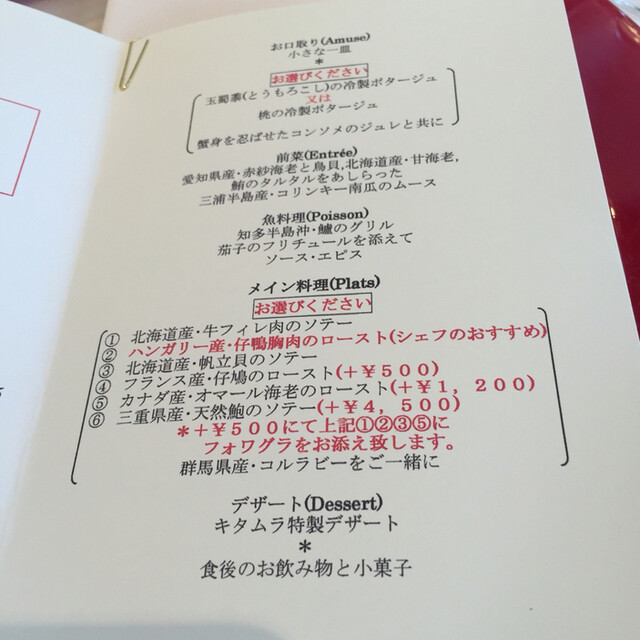 お口取り(Amuse)
小さな一皿
*
お選びください
玉蜀黍(とうもろこし)の冷製ポタージュ
又は
桃の冷製ポタージュ
蟹身を忍ばせたコンソメのジュレと共に
前菜(Entrée)
愛知県産・赤紗海老と鳥貝,北海道産・甘海老,
鮪のタルタルをあしらった
三浦半島産・コリンキー南瓜のムース
魚料理(Poisson)
知多半島沖・鱸のグリル
茄子のフリチュールを添えて
ソース・エピス
メイン料理(Plats)
お選びください
① 北海道産・牛フィレ肉のソテー
② ハンガリー産・仔鴨胸肉のロースト(シェフのおすすめ)
③ 北海道産・帆立貝のソテー
④ フランス産・仔鳩のロースト(+¥500)
⑤ カナダ産・オマール海老のロースト(+¥1,200)
⑥ 三重県産・天然鮑のソテー(+¥4,500)
*+¥500にて上記①②③⑤に
フォワグラをお添え致します。
群馬県産・コルラビーをご一緒に
デザート(Dessert)
キタムラ特製デザート
*
食後のお飲み物と小菓子